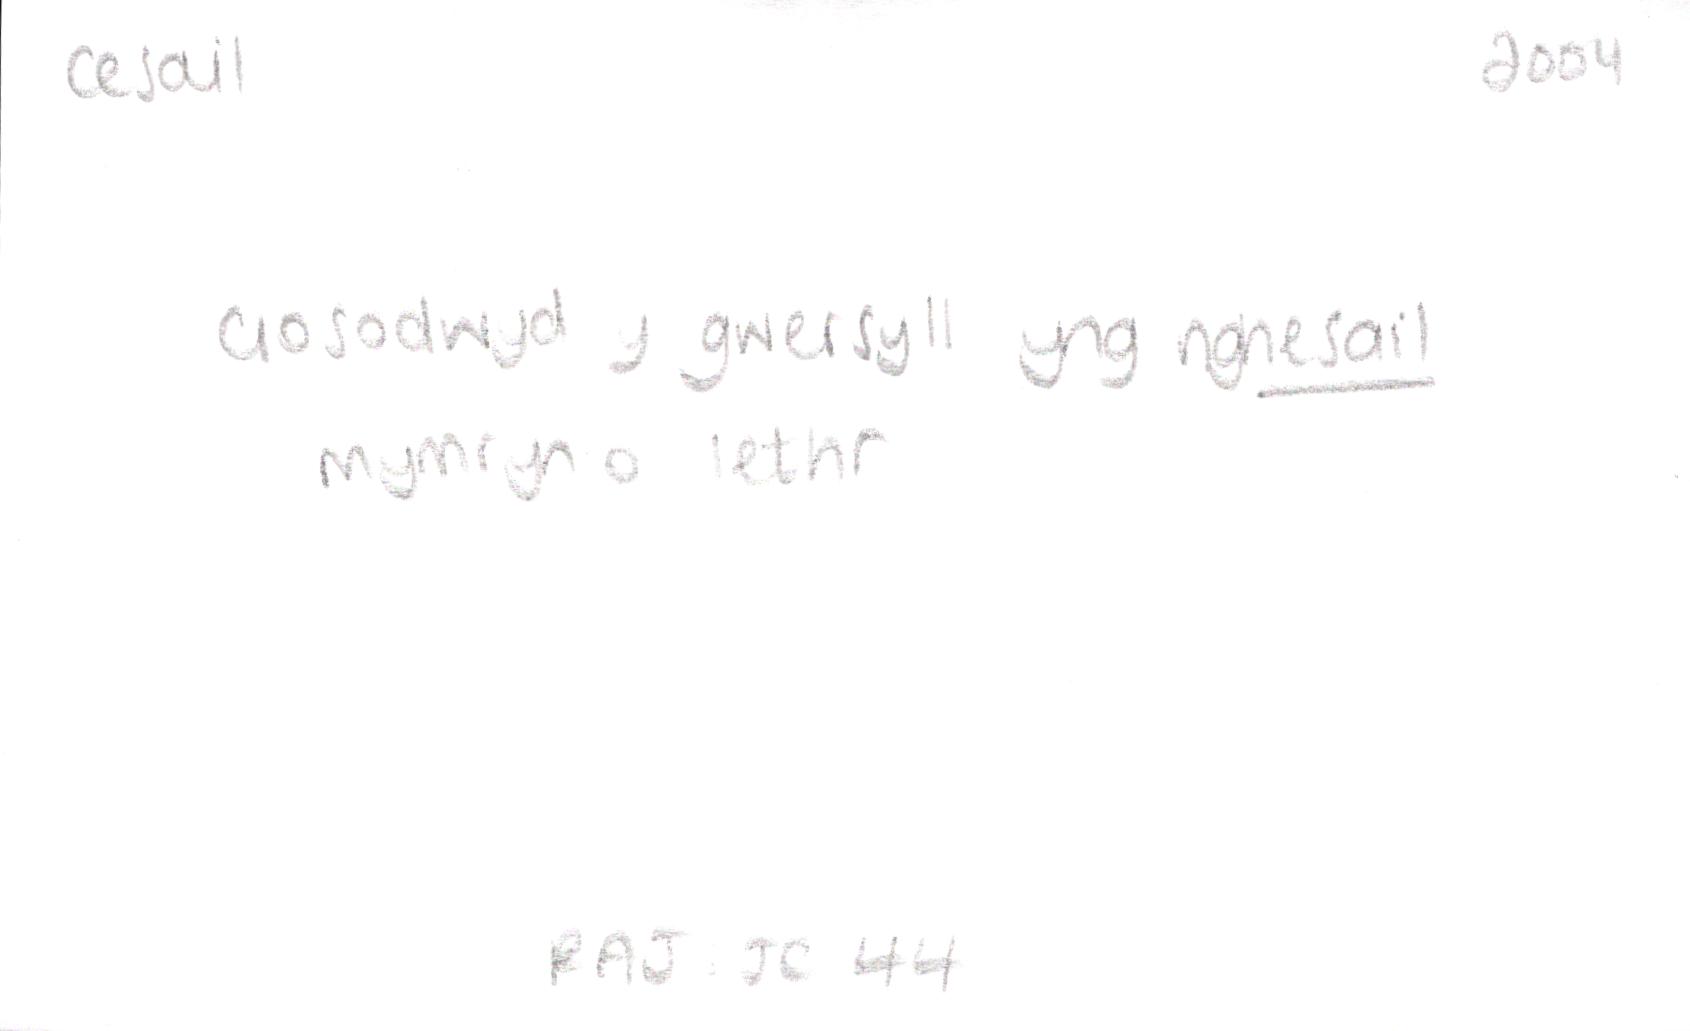 cesail 2004
Gosodwyd y gwersyll yng nghesail
mymryn o lethr
RAJ: JC 44